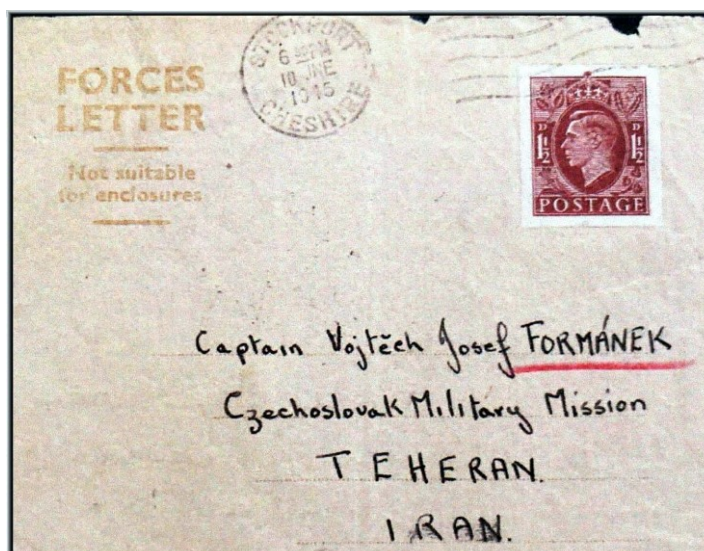 FORCES
LETTER
Not suitable
for enclosures
STOCKPORT
6 PM
10 JNE
1945
CHESHIRE
1½D 1½D
POSTAGE
Captain Vojtěch Josef FORMÁNEK
Czechoslovak Military Mission
TEHERAN.
IRAN.